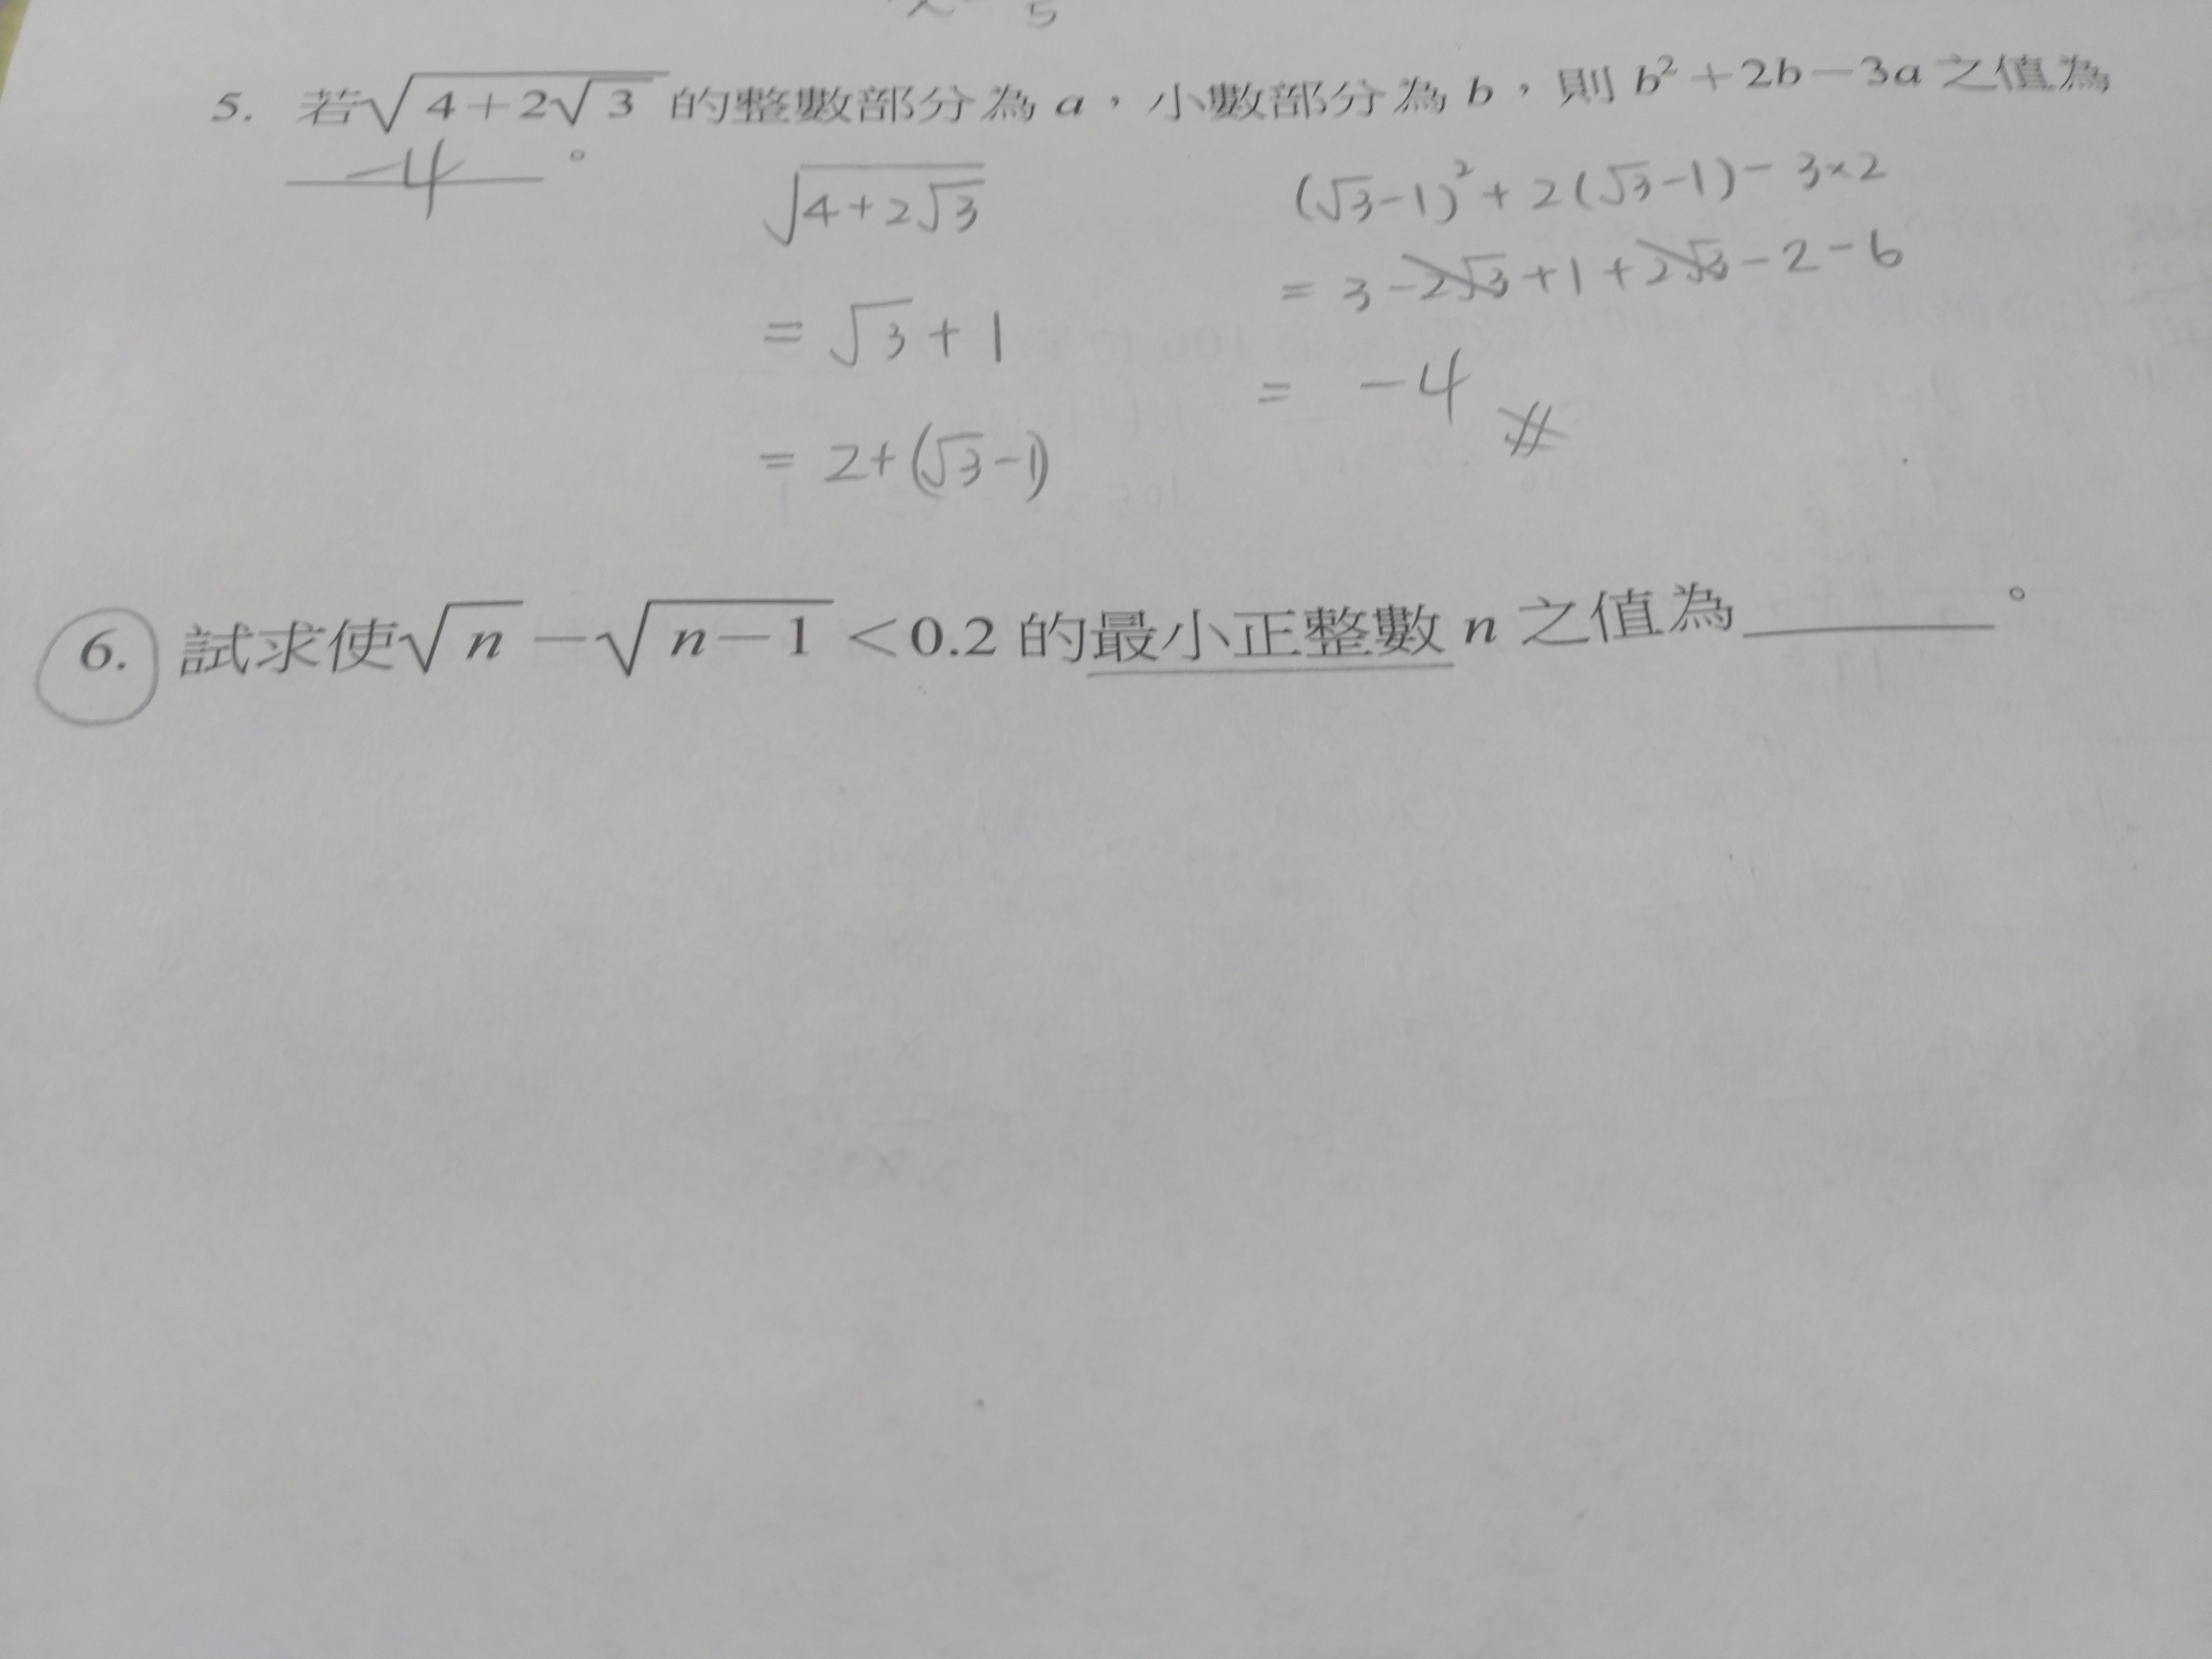 5. 若√(4+2√3) 的整數部分為 a，小數部分為 b，則 b²+2b−3a 之值為
-4 。
√(4+2√3)
= √3+1
= 2+(√3-1)
(√3-1)²+2(√3-1)-3×2
= 3-2√3+1+2√3-2-6
= -4 #
6. 試求使√n−√(n−1)<0.2 的最小正整數 n 之值為______。